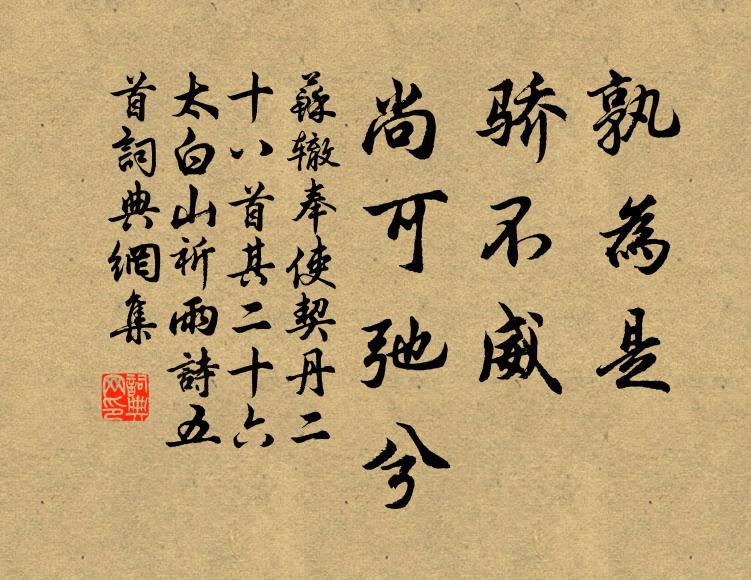 孰為是
骄不威
尚可弛兮
蘇辙奉使契丹二
十八首其二十六
太白山祈雨詩五
首詞典網集
詞典网印